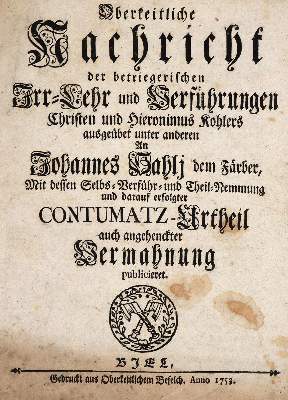 Oberkeitliche
Nachricht
der betriegerischen
Irr-Lehr und Verführungen
Christen und Hieronimus Kohlers
ausgeübet unter anderen
An
Johannes Sahlj dem Färber,
Mit dessen Selbs-Verführ- und Theil-Nemmung
und darauf erfolgter
CONTUMATZ-Urtheil
auch angehenckter
Vermahnung
publicieret.
BIEL,
Gedruckt aus Oberkeitlichem Befelch. Anno 1753.